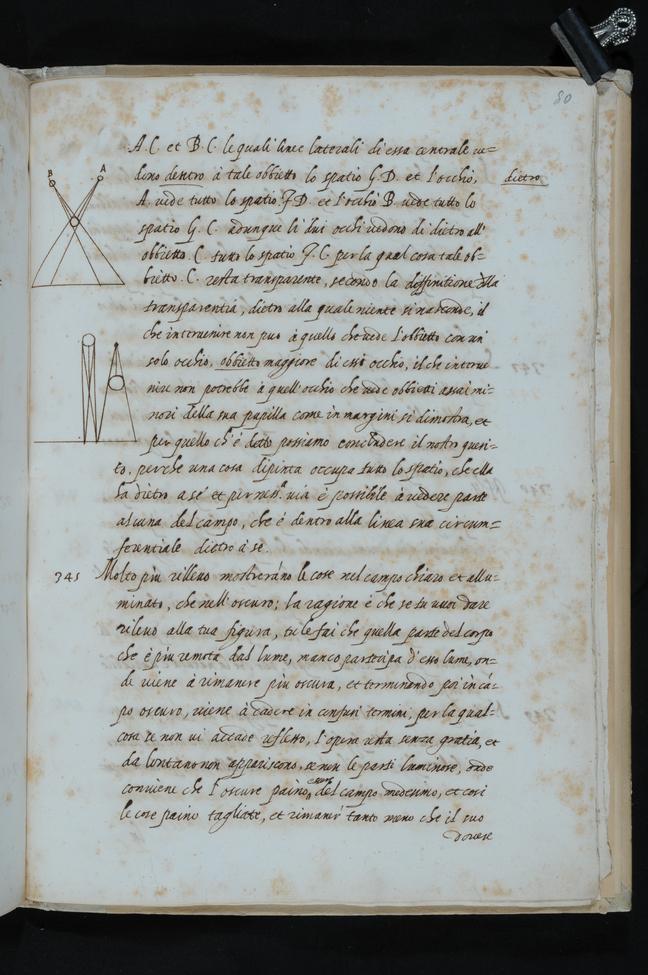 80
A. C. et B. C. le quali linee laterali di essa centrale ue=
dino dentro à tale obbietto lo spatio G. D. et l'occhio,
dietro
A. uede tutto lo spatio F. D. et l'occhio B. uede tutto lo
spatio G. C. adunque li dui occhi uedono di dietro all'
obbietto. C. tutto lo spatio F. C. per la qual cosa tale ob=
bietto. C. resta transparente, secondo la diffinitione della
transparentia, dietro alla quale niente si nasconde, il
che interuenire non puo à quello che uede l'obbietto con un'
solo occhio, obbietto maggiore di esso occhio, il che interue
nire non potrebbe à quell'occhio che uede obbietti assai mi=
nori della sua papilla come in margini si dimostra, et
per quello ch'é detto possiamo concludere il nostro quesi=
to, perche una cosa dipinta occupa tutto lo spatio, che ella
ha dietro a sé et per niss.a uia è possibile à uedere parte
alcuna del campo, che é dentro alla linea sua circum=
ferentiale dietro à se.
B A
741 Molto piu rilieuo mostreranno le cose nel campo chiaro et allu=
minato, che nell'oscuro; la ragione é che se tu uuoi dare
rilieuo alla tua figura, tu le fai che quella parte del corpo
che é piu remota dal lume, manco partecipa d'esso lume, on=
de uiene à rimanere piu oscura, et terminando poi in cá=
po oscuro, uiene à cadere in confusi termini, per la qual=
cosa se non ui accade reflesso, l'opera resta senza gratia, et
da lontano non appariscono, se non le parti luminose, onde
conuiene che l'oscure paino essere del campo medesimo, et cosi
le cose paino tagliate, et rimaner tanto meno che il suo
douere